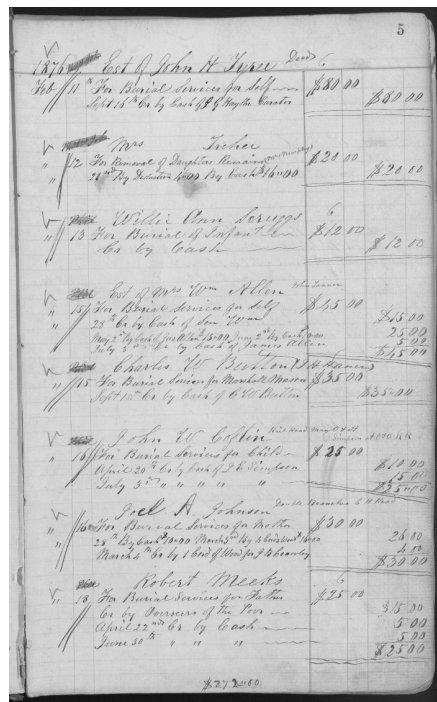 5
1876 Est of John H Tyree Decd
Feb 11th For Burial Services for Self $80 00
Sept 14th Cr by Cash of Curator $80 00
Mrs Treher
" 12 For Removal of Daughter Remains $20 00
28th By Deduction 4.00 By Cash $16.00 $20 00
Willie Ann Scruggs 6
" 13 For Burial of Infant $12 00
Cr by Cash $12 00
Est of Mrs Wm Allen
" 15 For Burial Services for Self $45 00
28th Cr by Cash of Son Wm $15 00
May 2nd By Cash of 15.00 June 2nd by Cash 25 00
July 3rd by Cash of James Allen 5 00
$45 00
Charles W
" 15 For Burial Services for Marshall $35 00
Sept 14th Cr by Cash of C W $35.00
John W Coffin
" 16 For Burial Services for Child $25 00
April 20th Cr by Cash of J Simpson $10 00
July 3rd " " " " " 15 00
$25.00
Joel A Johnson
" 16 For Burial Services for Mother $30 00
28th By Cash 10.00 March 3rd By 4 Cords Wood 16.00 26 00
March 4th Cr by 1 Cord of Wood for J B 4 00
$30 00
Robert Meeks 6
" 18 For Burial Services for Father $25 00
Cr by Overseers of the Poor $15 00
April 22nd Cr by Cash 5 00
June 30th " " " 5 00
$25 00
$272.00